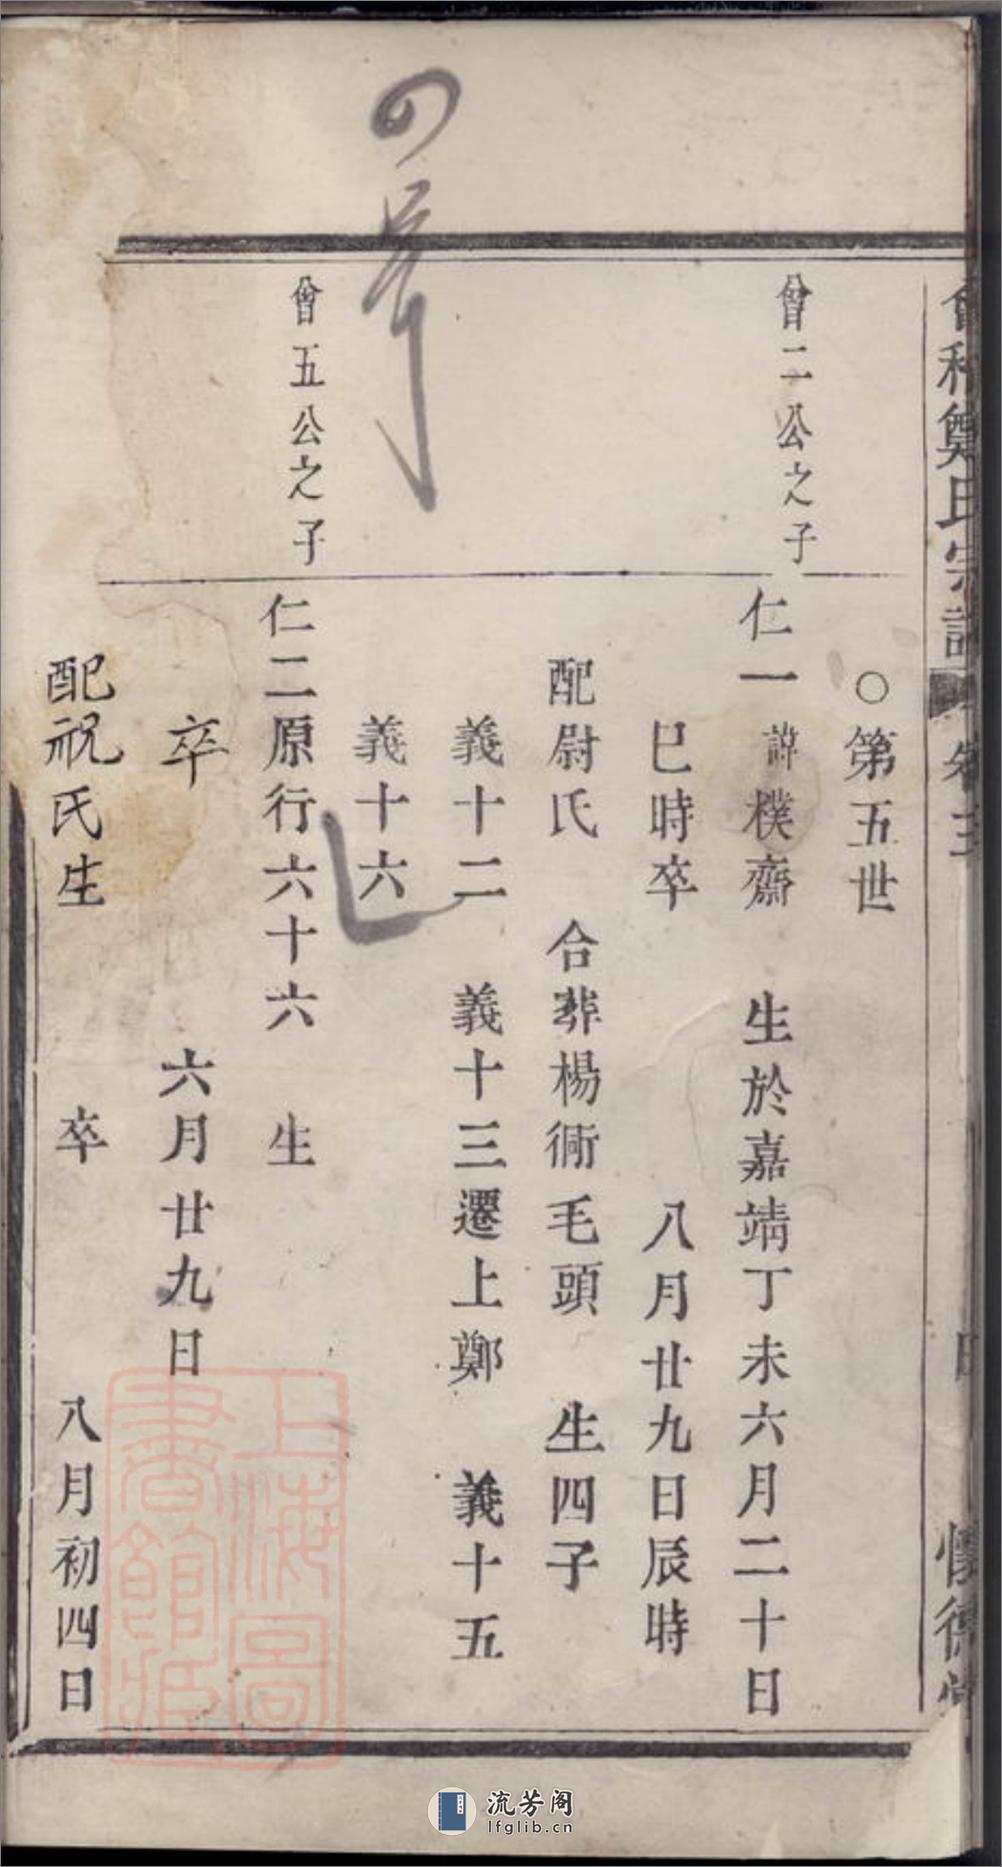 會稽鄭氏宗譜 卷三 懷德堂
○第五世
曾二公之子
仁一 諱樸齋 生於嘉靖丁未六月二十日
巳時卒 八月廿九日辰時
配尉氏 合葬楊衕毛頭 生四子
義十二 義十三遷上鄭 義十五
義十六
曾五公之子
仁二原行六十六 生
卒 六月廿九日
配祝氏生 卒 八月初四日
上海圖書館藏
流芳阁
lfglib.cn